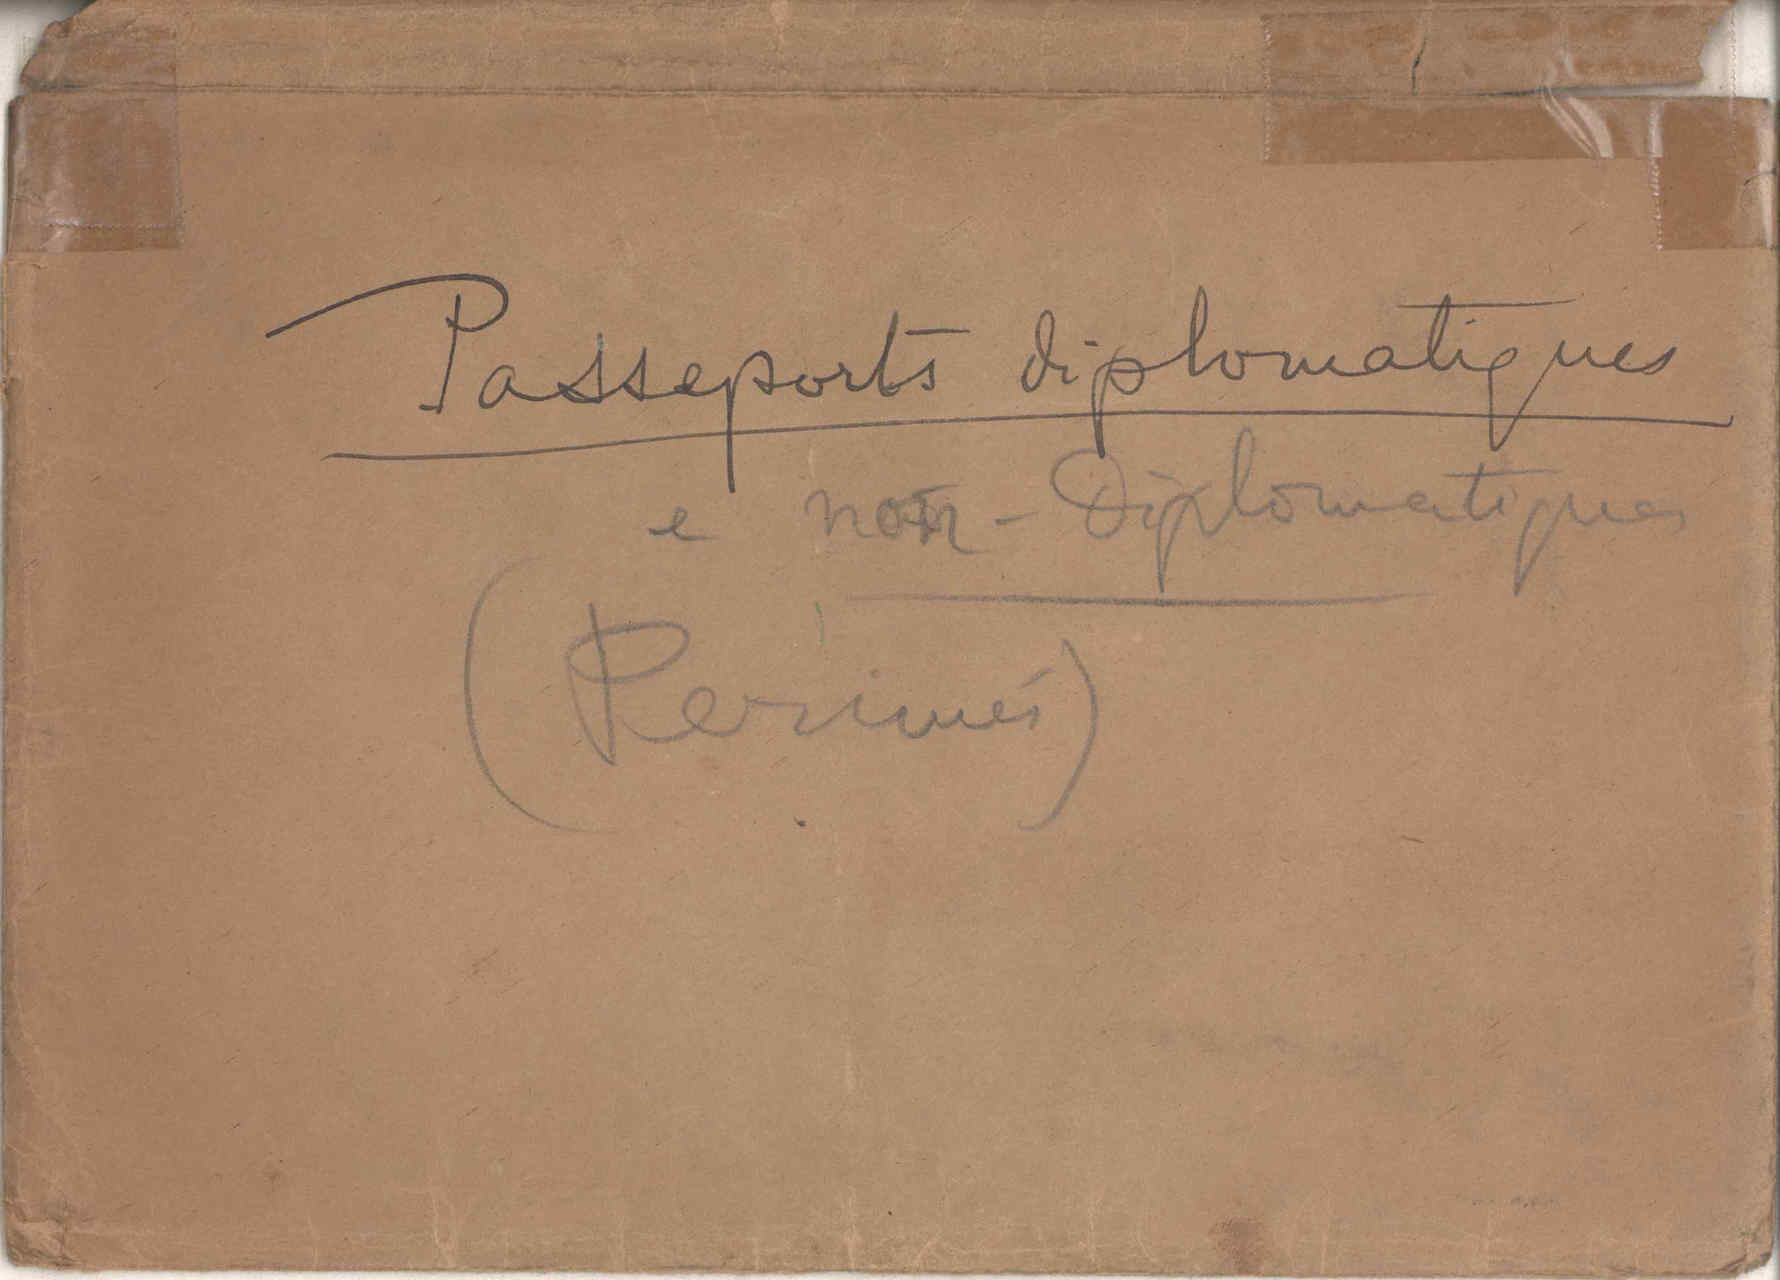 Passeports diplomatiques
e non-Diplomatiques
(Perimés)